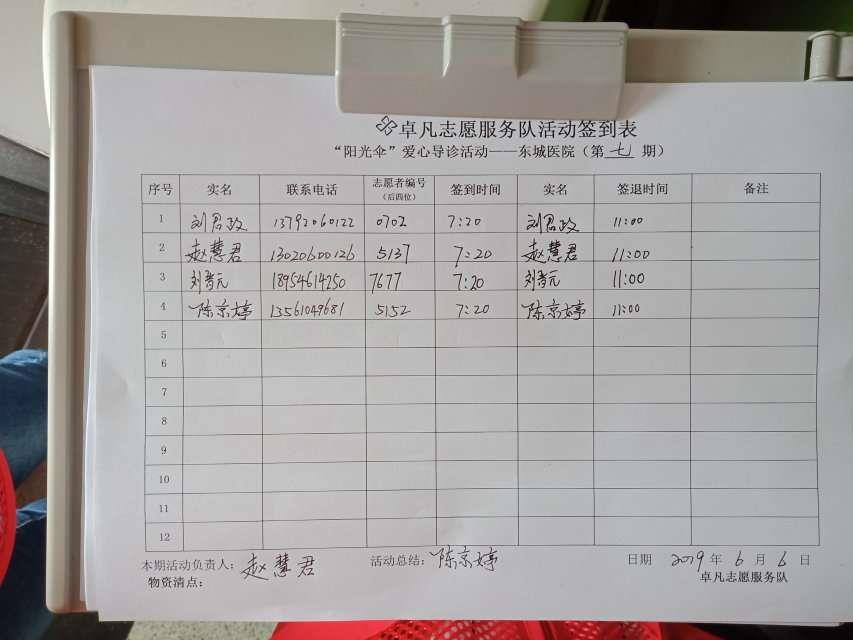 卓凡志愿服务队活动签到表
“阳光伞”爱心导诊活动——东城医院（第 七 期）
序号 实名 联系电话 志愿者编号（后四位） 签到时间 实名 签退时间 备注
1 刘君政 13792060122 0702 7:20 刘君政 11:00
2 赵慧君 13020600126 5137 7:20 赵慧君 11:00
3 刘春元 18954614250 7677 7:20 刘春元 11:00
4 陈京婷 13561049681 5152 7:20 陈京婷 11:00
5
6
7
8
9
10
11
12
本期活动负责人：赵慧君 活动总结：陈京婷 日期 2019 年 6 月 6 日
物资清点： 卓凡志愿服务队